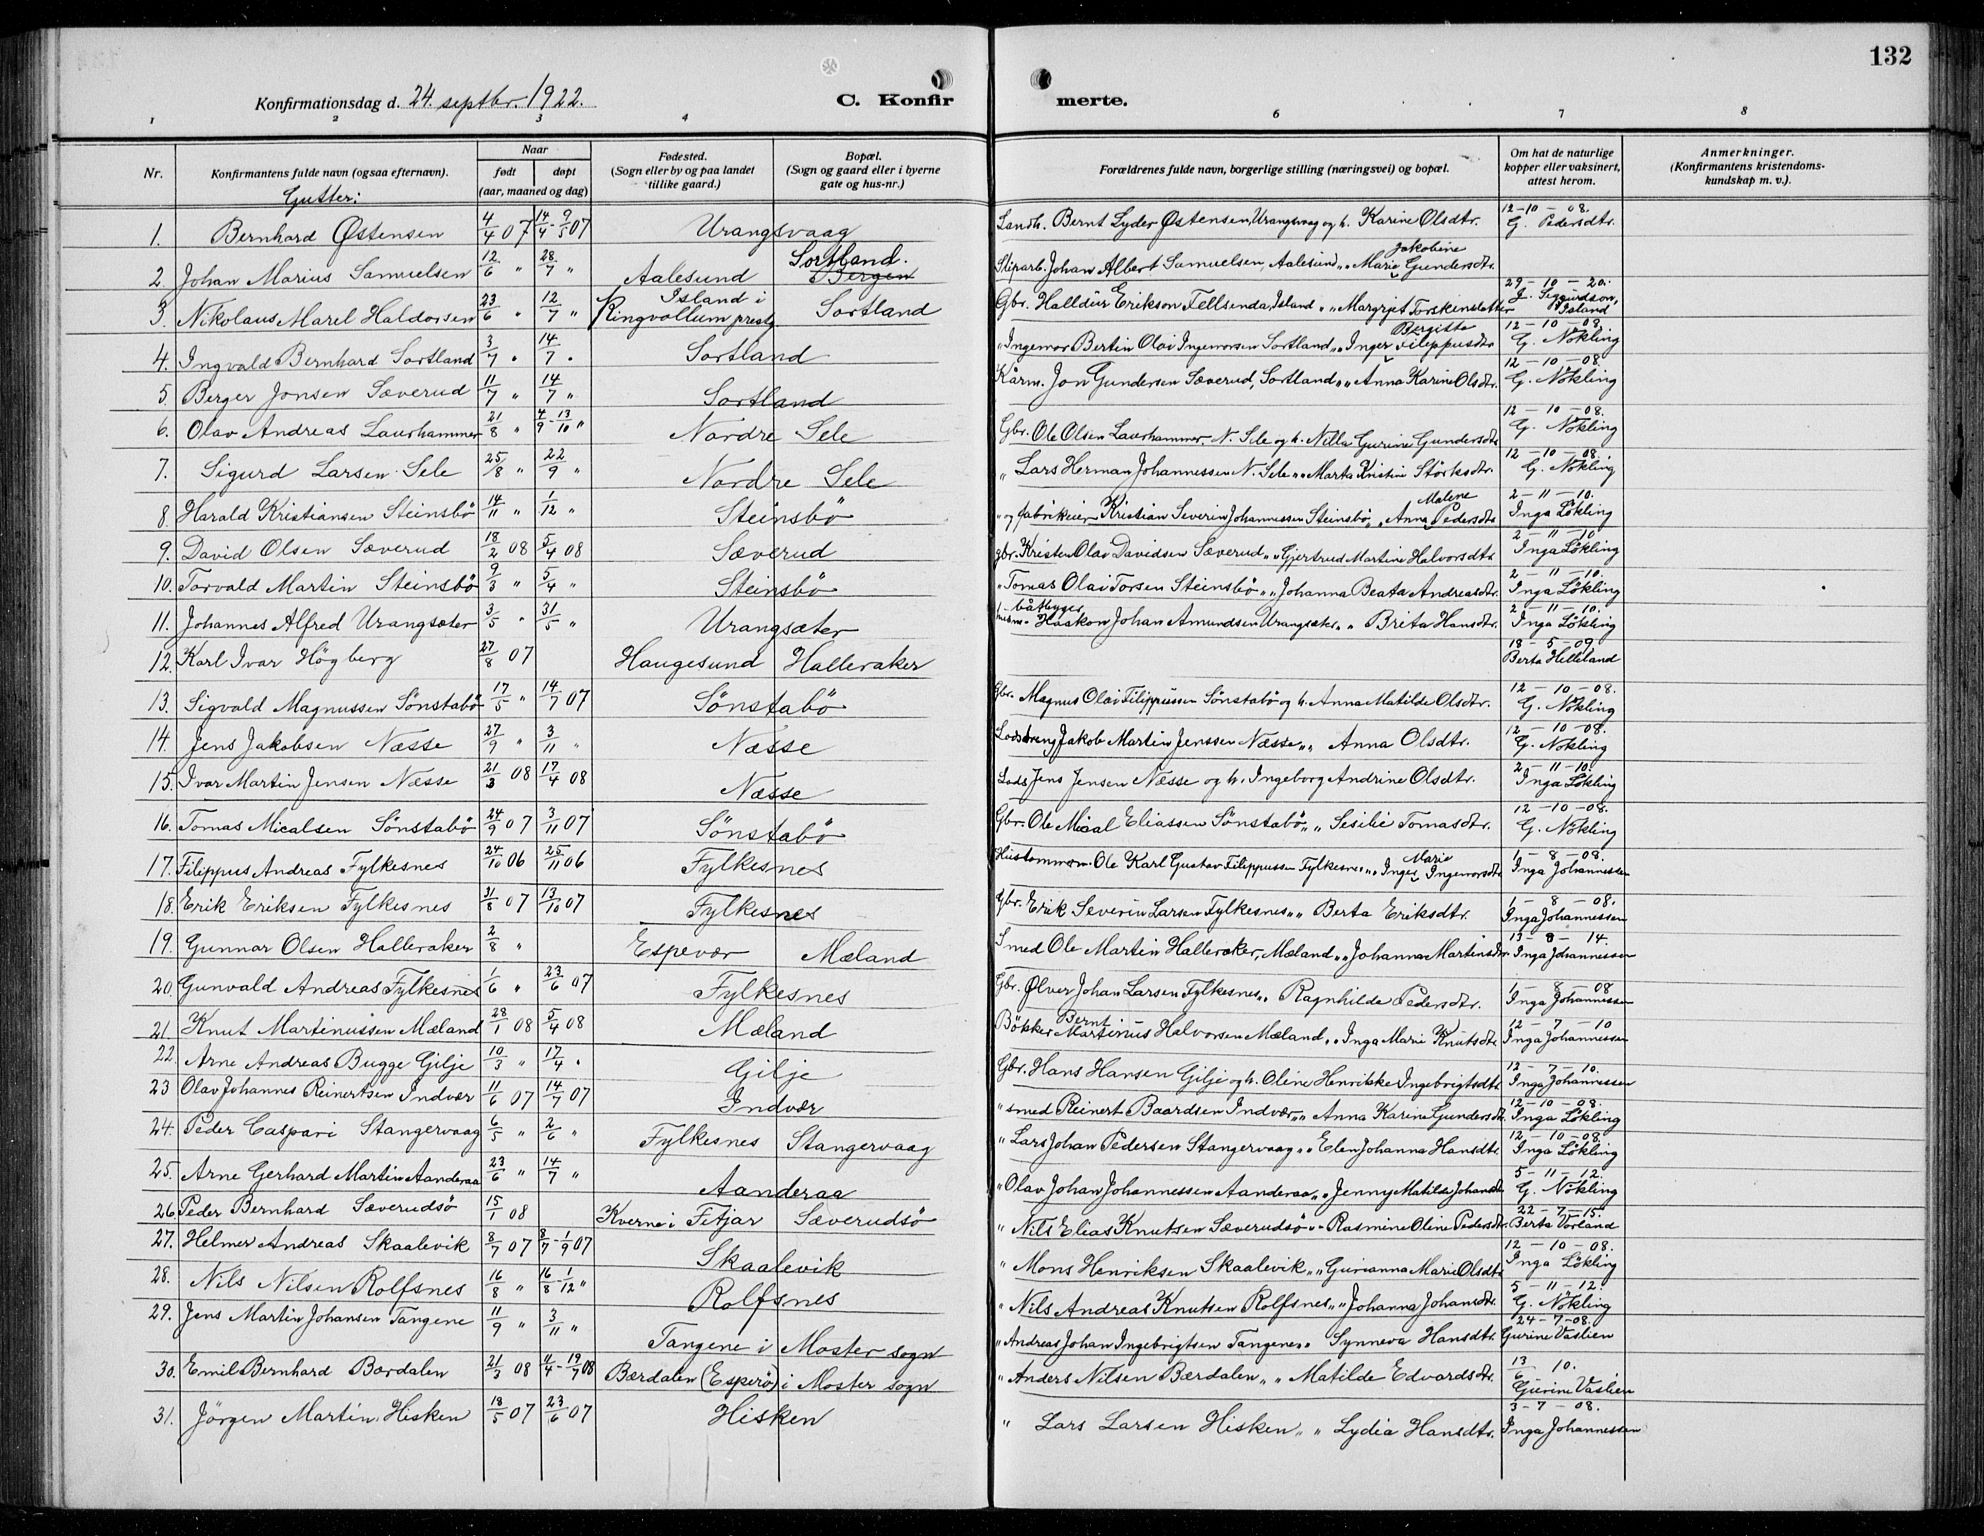 132
Konfirmationsdag d. 24. septbr. 1922.
C. Konfirmerte.
1 2 3 4 6 7 8
Nr. | Konfirmantens fulde navn (ogsaa efternavn). | Naar født | døpt (aar, maaned og dag) | Fødested. (Sogn eller by og paa landet tillike gaard.) | Bopæl. (Sogn og gaard eller i byerne gate og hus-nr.) | Forældrenes fulde navn, borgerlige stilling (næringsvei) og bopæl. | Om hat de naturlige kopper eller vaksinert, attest herom. | Anmerkninger. (Konfirmantens kristendomskundskap m. v.).
Gutter:
1. Bernhard Østensen 4/4 07 14/4 - 9/5 07 Urangsvaag Landh. Bernt Lyder Østensen, Urangsvaag og h. Karine Olsdtr. 12-10-08. G. Pedersdtr.
2. Johan Marius Samuelsen 12/6 " 28/7 " Aalesund Sortland. Bergen Johan Albert Samuelsen, Aalesund " " Marie Jakobine Gundersdtr.
3. Nikolaus Marel Haldorsen 23/6 " 12/7 " Island i Ringvollum prestg Sortland Gbr. Halldür Erikson Fellsenda, Island " " Margrjet Torskinsdatter 29-10-20. J. Siggurdson, Island
4. Ingvald Bernhard Sortland 3/7 " 14/7 " Sortland " Ingemar Bertin Olai Ingemorsen Sortland " " Inger Bergitte Filippusdtr 12-10-08. G. Nökling
5. Berger Jonsen Sæverud 11/7 " 14/7 " Sortland Kårm. Jon Gundersen Sæverud, Sortland " " Anna Karine Olsdtr. 12-10-08 G. Nökling
6. Olav Andreas Laurhammer 21/8 " 4/9 - 13/10 " Nordre Sele Gbr. Ole Olsen Laurhammer, N. Sele og h. Nilla Gurine Gundersdtr 12-10-08. G. Nökling
7. Sigurd Larsen Sele 25/8 " 22/9 " Nordre Sele " Lars Herman Johannessen N. Sele " " Marta Kristine Störksdtr. 12-10-08. G. Nökling
8. Harald Kristiansen Steinsbö 14/11 " 1/12 " Steinsbö " og fabrikeier Kristian Severin Johannessen Steinsbö " " Anna Malene Pedersdtr 2-11-10. Inga Lökling
9. David Olsen Sæverud 18/2 08 5/4 08 Sæverud gbr. Kristen Olav Davidsen Sæverud " " Gjertrud Martine Halvorsdtr 2-11-10. Inga Lökling
10. Torvald Martin Steinsbö 9/3 " 5/4 " Steinsbö " Tomas Olai Torsen Steinsbö " " Johanna Beata Andreasdtr 2-11-10. Inga Lökling
11. Johannes Alfred Urangsæter 3/5 " 31/5 " Urangsæter båtbygger Haakon Johan Amundsen Urangsæter " " Brita Hansdtr. 2-11-10. Inga Lökling
12. Karl Ivar Högberg 27/8 07 Haugesund Halleraker 18-5-09 Berta Helleland
13. Sigvald Magnussen Sönstabö 17/5 " 14/7 07 Sönstabö Gbr. Magnus Olai Filippussen Sönstabö og h. Anna Matilde Olsdtr. 12-10-08. G. Nökling
14. Jens Jakobsen Næsse 27/9 " 3/11 " Næsse Lodsdreng Jakob Martin Jenssen Næsse " " Anna Olsdtr. 12-10-08. G. Nökling
15. Ivar Martin Jensen Næsse 21/3 08 17/4 08 Næsse Lods Jens Jensen Næsse og h. Ingeborg Andrine Olsdtr. 2-11-10. Inga Lökling
16. Tomas Micalsen Sönstabö 24/9 07 3/11 07 Sönstabö Gbr. Ole Mical Eliassen Sönstabö " " Sesilie Tomasdtr. 12-10-08. G. Nökling
17. Filippus Andreas Fylkesnes 24/10 06 25/11 06 Fylkesnes Hustømmerm. Ole Karl Gustav Filippussen Fylkesnes " " Inger Marie Ingemorsdtr 1-8-08. Inga Johannessen
18. Erik Eriksen Fylkesnes 31/8 07 13/10 07 Fylkesnes Gbr. Erik Severin Larsen Fylkesnes " " Berta Eriksdtr. 1-8-08. Inga Johannessen
19. Gunnar Olsen Halleraker 2/8 " Espevær Mæland Smed Ole Martin Halleraker, Mæland " " Johanna Martinsdtr 13-8-14. Inga Johannessen
20. Gunvald Andreas Fylkesnes 1/6 " 23/6 07 Fylkesnes Gbr. Ølver Johan Larsen Fylkesnes " " Ragnhilde Pedersdtr. 1-8-08 Inga Johannessen
21. Knut Martinussen Mæland 28/1 08 5/4 08 Mæland Bökker Bernt Martinus Halvorsen Mæland " " Inga Marie Knutsdtr 12-7-10 Inga Johannessen
22. Arne Andreas Bugge Gilje 10/3 " 17/4 " Gilje Gbr. Hans Hansen Gilje og h. Oline Henrikke Ingebrigtsdtr 12-7-10. Inga Johannessen
23 Olav Johannes Reinertsen Indvær 11/6 07 14/7 07 Indvær " smed Reinert Baardsen Indvær " " Anna Karine Gundersdtr 12-10-08. Inga Lökling
24. Peder Caspari Stangervaag 6/5 " 2/6 " Fylkesnes Stangervaag " Lars Johan Pedersen Stangervaag " " Elen Johanna Hansdtr 12-10-08. Inga Lökling
25. Arne Gerhard Martin Aanderaa 23/6 " 14/7 " Aanderaa " Olav Johan Johannessen Aanderaa " " Jenny Matilde Johansdtr 5-11-12. G. Nökling
26. Peder Bernhard Sæverudsö 15/1 08 Kverne i Fitjar Sæverudsö " Nils Elias Knutsen Sæverudsö " " Rasmine Oline Pedersdtr. 22-7-15. Berta Vorland
27. Helmer Andreas Skaalevik 8/7 07 8/7 - 1/9 07 Skaalevik " Mons Henriksen Skaalevik " " Gurianna Marie Olsdtr 12-10-08. Inga Lökling
28. Nils Nilsen Rolfsnes 16/8 " 16/8 - 1/12 " Rolfsnes " Nils Andreas Knutsen Rolfsnes " " Johanna Johansdtr. 5-11-12. G. Nökling
29. Jens Martin Johansen Tangene 11/9 " 3/11 " Tangene i Moster sogn " Andreas Johan Ingebrigtsen Tangene " " Synneva Hansdtr. 24-7-08. Gurine Vaslien
30. Emil Bernhard Bærdalen 21/3 08 11/4 - 19/7 08 Bærdalen (Esperö) i Moster sogn " Anders Nilsen Bærdalen " " Matilde Edvardsdtr. 13/6 10. Gurine Vaslien
31. Jörgen Martin Hisken 18/5 07 23/6 07 Hisken " Lars Larsen Hisken " " Lydia Hansdtr. 3-7-08. Inga Johannessen